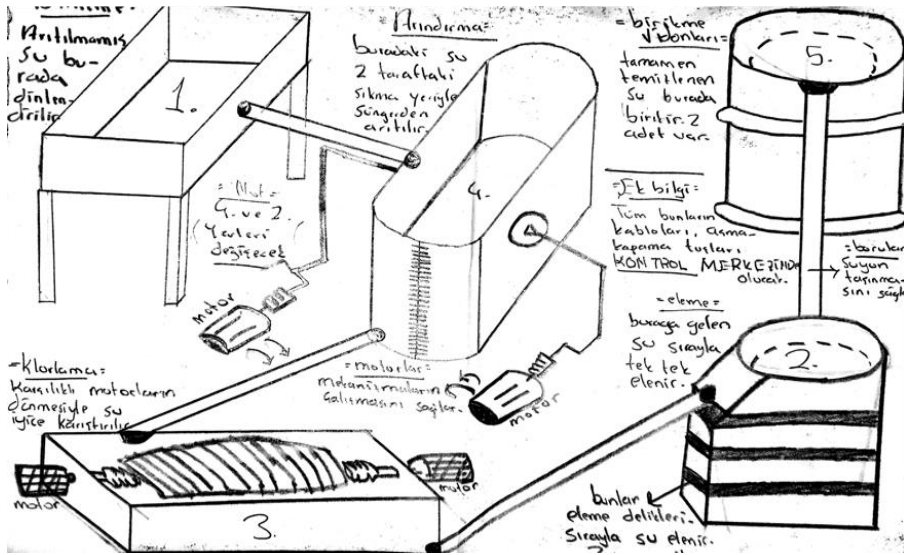 Arıtılmamış
su bu-
rada
dinlen-
dirilir
1.
Arındırma=
buradaki su
2 taraftaki
sıkma yeriyle
süngerden
arıtılır.
=birikme
bidonları=
tamamen
temizlenen
su burada
birikir. 2
adet var.
5.
=Not=
4. ve 2.
(Yerleri
değişecek)
motor
4.
=Ek bilgi=
Tüm bunların
kabloları, açma-
kapama tuşları
KONTROL MERKEZİNDE
olucak.
=borular
suyun
taşınma-
sını sağla
=eleme=
buraya gelen
su sırayla
tek tek
elenir.
2.
=Klorlama=
Karşılıklı motorların
dönmesiyle su
iyice karıştırılır
=motorlar=
mekanizmaların
çalışmasını sağlar.
motor
motor
3.
motor
bunlar
eleme delikleri.
Sırayla su elenir.